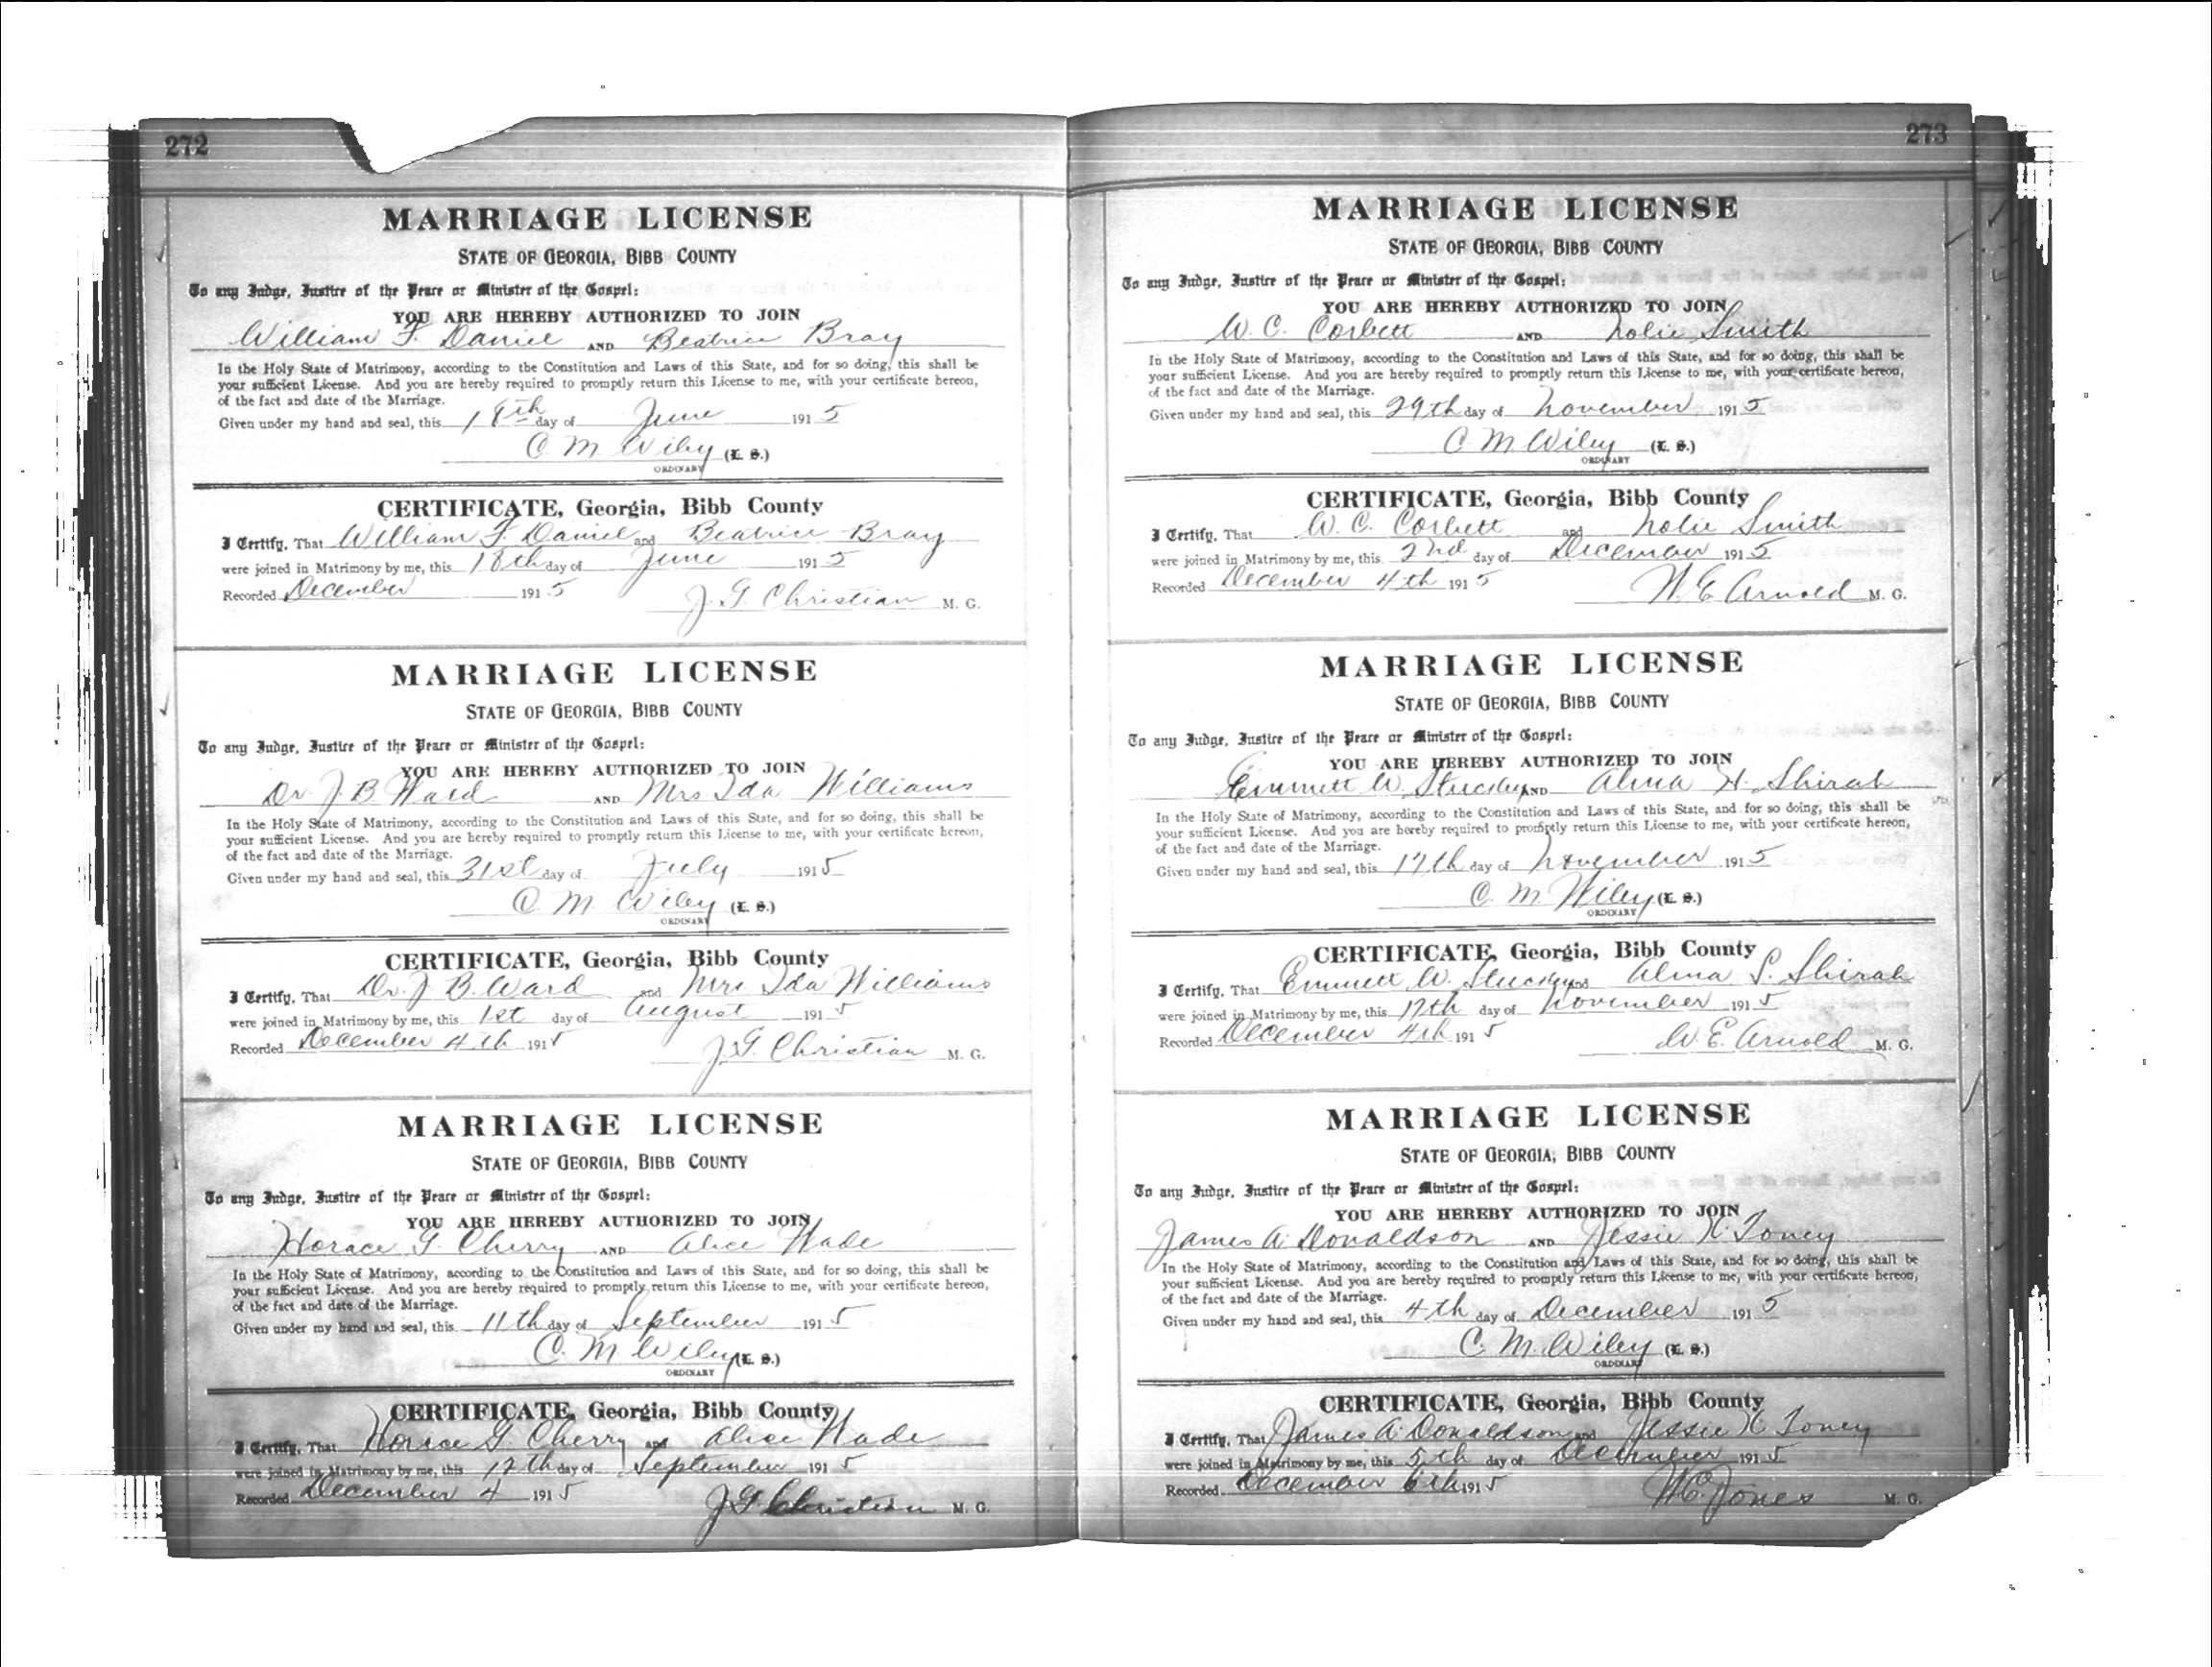 272
MARRIAGE LICENSE
STATE OF GEORGIA, BIBB COUNTY
To any Judge, Justice of the Peace or Minister of the Gospel:
YOU ARE HEREBY AUTHORIZED TO JOIN
William F. Daniel AND Beatrice Bray
In the Holy State of Matrimony, according to the Constitution and Laws of this State, and for so doing, this shall be
your sufficient License. And you are hereby required to promptly return this License to me, with your certificate hereon,
of the fact and date of the Marriage.
Given under my hand and seal, this 18th day of June 1915
C. M. Wiley (L. S.)
ORDINARY
CERTIFICATE, Georgia, Bibb County
I Certify, That William F. Daniel and Beatrice Bray
were joined in Matrimony by me, this 18th day of June 1915
Recorded December 1915
J. G. Christian M. G.
MARRIAGE LICENSE
STATE OF GEORGIA, BIBB COUNTY
To any Judge, Justice of the Peace or Minister of the Gospel:
YOU ARE HEREBY AUTHORIZED TO JOIN
Dr. J. B. Ward AND Mrs Ida Williams
In the Holy State of Matrimony, according to the Constitution and Laws of this State, and for so doing, this shall be
your sufficient License. And you are hereby required to promptly return this License to me, with your certificate hereon,
of the fact and date of the Marriage.
Given under my hand and seal, this 31st day of July 1915
C. M. Wiley (L. S.)
ORDINARY
CERTIFICATE, Georgia, Bibb County
I Certify, That Dr. J. B. Ward and Mrs Ida Williams
were joined in Matrimony by me, this 1st day of August 1915
Recorded December 4th 1915
J. G. Christian M. G.
MARRIAGE LICENSE
STATE OF GEORGIA, BIBB COUNTY
To any Judge, Justice of the Peace or Minister of the Gospel:
YOU ARE HEREBY AUTHORIZED TO JOIN
Horace G. Cherry AND Alice Wade
In the Holy State of Matrimony, according to the Constitution and Laws of this State, and for so doing, this shall be
your sufficient License. And you are hereby required to promptly return this License to me, with your certificate hereon,
of the fact and date of the Marriage.
Given under my hand and seal, this 11th day of September 1915
C. M. Wiley (L. S.)
ORDINARY
CERTIFICATE, Georgia, Bibb County
I Certify, That Horace G. Cherry and Alice Wade
were joined in Matrimony by me, this 12th day of September 1915
Recorded December 4 1915
J. G. Christian M. G.
273
MARRIAGE LICENSE
STATE OF GEORGIA, BIBB COUNTY
To any Judge, Justice of the Peace or Minister of the Gospel:
YOU ARE HEREBY AUTHORIZED TO JOIN
W. C. Corbett AND Nolie Smith
In the Holy State of Matrimony, according to the Constitution and Laws of this State, and for so doing, this shall be
your sufficient License. And you are hereby required to promptly return this License to me, with your certificate hereon,
of the fact and date of the Marriage.
Given under my hand and seal, this 29th day of November 1915
C. M. Wiley (L. S.)
ORDINARY
CERTIFICATE, Georgia, Bibb County
I Certify, That W. C. Corbett and Nolie Smith
were joined in Matrimony by me, this 2nd day of December 1915
Recorded December 4th 1915
W. E. Arnold M. G.
MARRIAGE LICENSE
STATE OF GEORGIA, BIBB COUNTY
To any Judge, Justice of the Peace or Minister of the Gospel:
YOU ARE HEREBY AUTHORIZED TO JOIN
Emmett W. Stuckey AND Alma H. Shirah
In the Holy State of Matrimony, according to the Constitution and Laws of this State, and for so doing, this shall be
your sufficient License. And you are hereby required to promptly return this License to me, with your certificate hereon,
of the fact and date of the Marriage.
Given under my hand and seal, this 17th day of November 1915
C. M. Wiley (L. S.)
ORDINARY
CERTIFICATE, Georgia, Bibb County
I Certify, That Emmett W. Stuckey and Alma S. Shirah
were joined in Matrimony by me, this 17th day of November 1915
Recorded December 4th 1915
W. E. Arnold M. G.
MARRIAGE LICENSE
STATE OF GEORGIA, BIBB COUNTY
To any Judge, Justice of the Peace or Minister of the Gospel:
YOU ARE HEREBY AUTHORIZED TO JOIN
James A. Donaldson AND Jessie K. Toney
In the Holy State of Matrimony, according to the Constitution and Laws of this State, and for so doing, this shall be
your sufficient License. And you are hereby required to promptly return this License to me, with your certificate hereon,
of the fact and date of the Marriage.
Given under my hand and seal, this 4th day of December 1915
C. M. Wiley (L. S.)
ORDINARY
CERTIFICATE, Georgia, Bibb County
I Certify, That James A. Donaldson and Jessie K Toney
were joined in Matrimony by me, this 5th day of December 1915
Recorded December 6th 1915
W. C. Jones M. G.